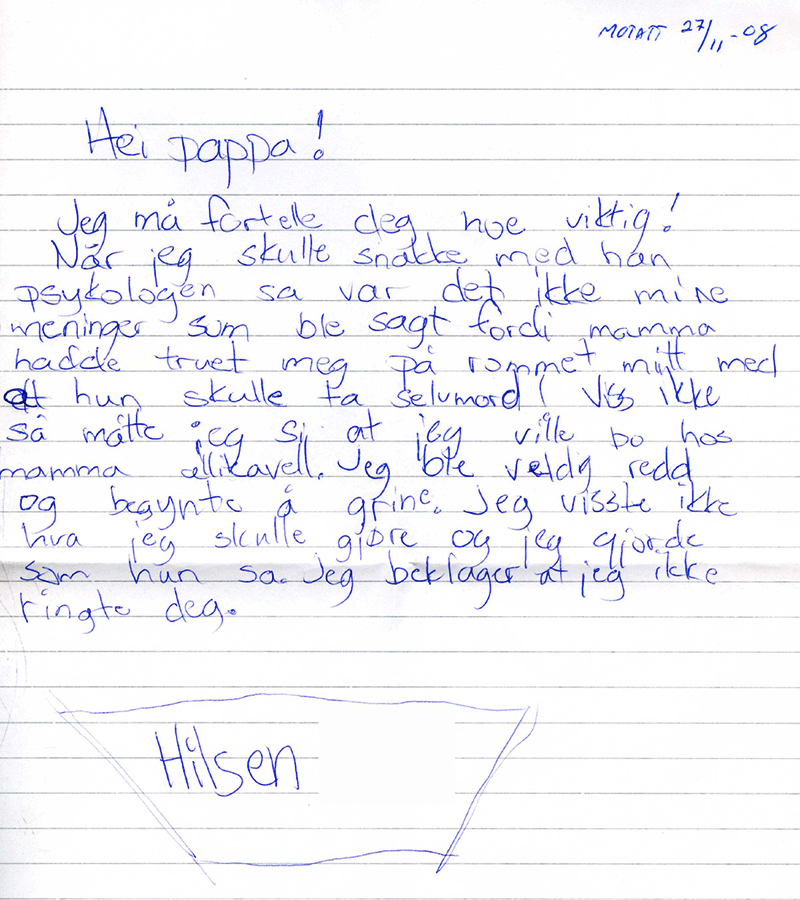 MOTATT 27/11-08
Hei pappa!
Jeg må fortelle deg noe viktig!
Når jeg skulle snakke med han
psykologen sa var det ikke mine
meninger som ble sagt fordi mamma
hadde truet meg på rommet mitt med
att hun skulle ta selvmord! Viss ikke
så måtte jeg si at jeg ville bo hos
mamma allikavell. Jeg ble veldig redd
og begynte å grine. Jeg visste ikke
hva jeg skulle gjøre og jeg gjorde
som hun sa. Jeg beklager at jeg ikke
ringte deg.
Hilsen